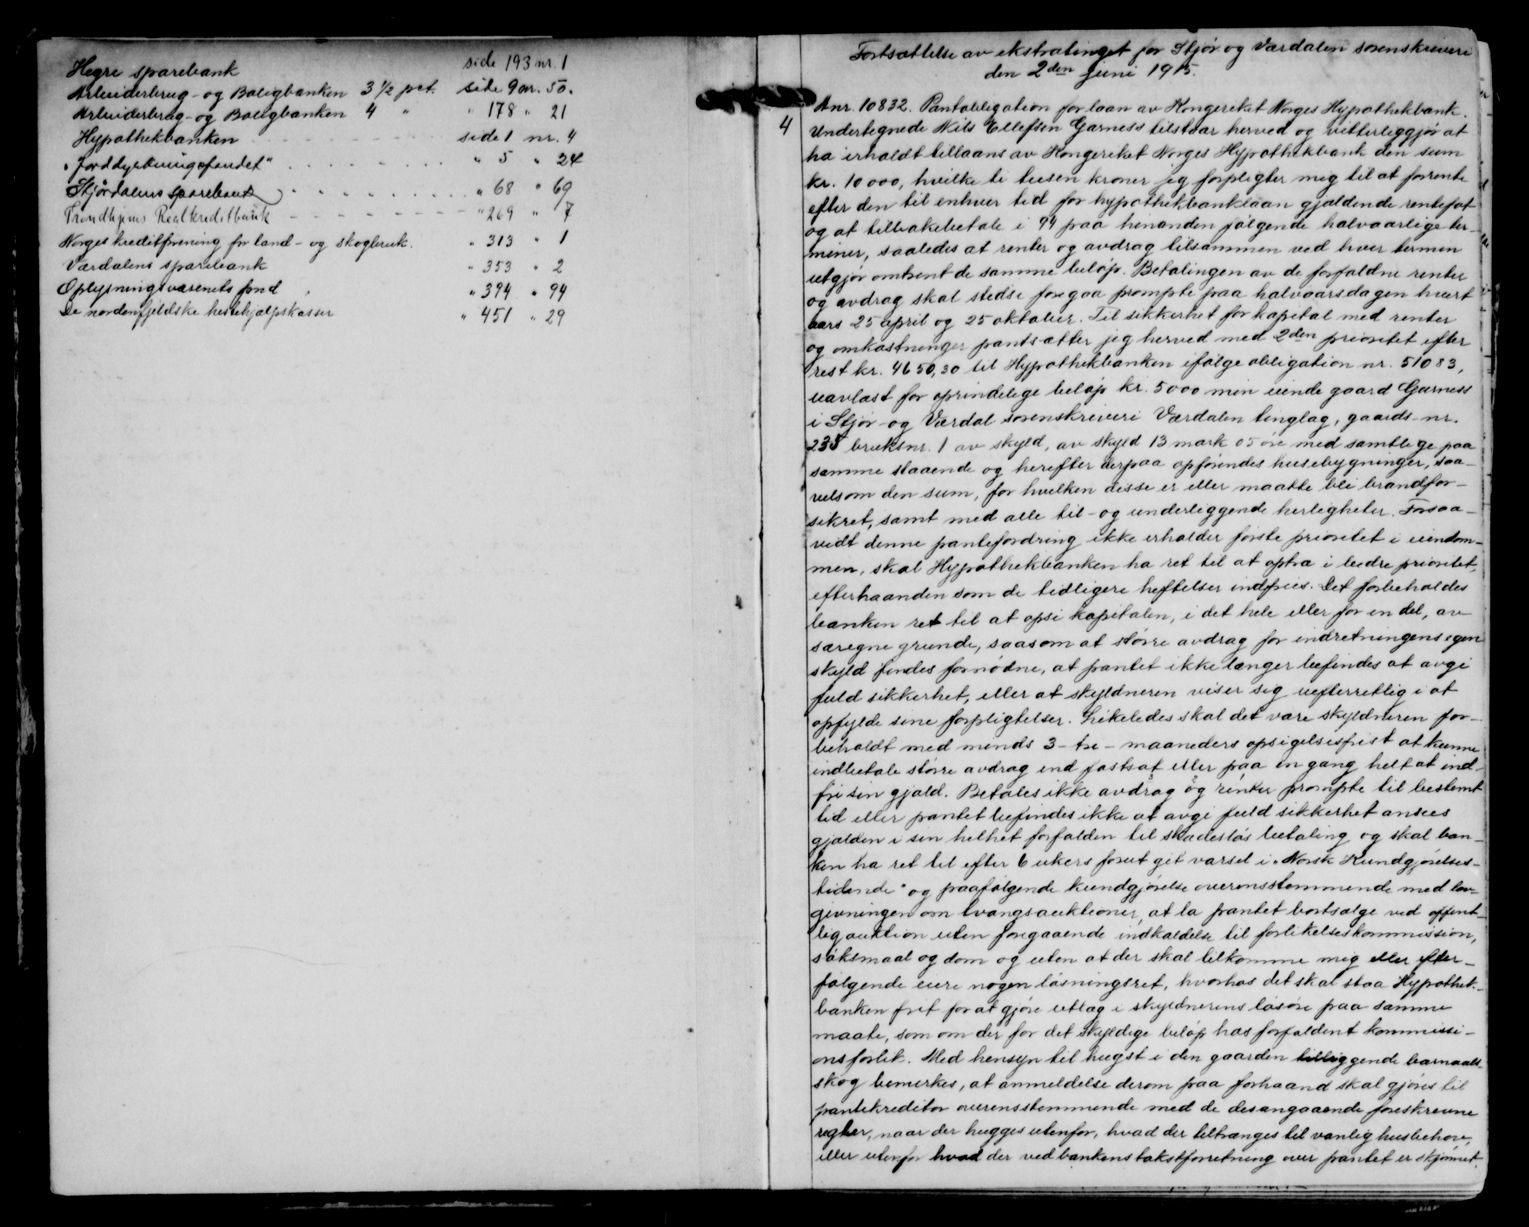 Hegre sparebank side 193 nr. 1
Arbeiderbruk- og Boligbanken 3 1/2 pct. side 9 nr. 50.
Arbeiderbruk- og Boligbanken 4 " " 178 " 21
Hypothekbanken side 1 nr. 4
"Jorddyrkningsfondet" " 5 " 24
Stjørdalens sparebank " 68 " 69
Trondhjems Realkreditbank " 269 " 7
Norges kreditforening for land- og skogbruk. " 313 " 1
Værdalens sparebank " 353 " 2
Oplysningsvæsenets fond " 394 " 94
De nordenfjeldske hestehjælpskasser " 451 " 29
Fortsættelse av ekstratinget for Stjør og Værdalen sorenskriveri
den 2den Juni 1915.
4
Anr. 10832. Pantobligation for laan av Kongeriket Norges Hypothekbank.
Undertegnede Nils Ellefsen Garness tilstaar herved og vitterliggjør at
ha erholdt tillaans av Kongeriket Norges Hypothekbank den sum
kr. 10 000, hvilke ti tusen kroner jeg forpligter meg til at forrente
efter den til enhver tid for hypothekbanklaan gjældende rentefot
og at tilbakebetale i 94 paa hinanden følgende halvaarlige ter-
miner, saaledes at renter og avdrag tilsammen ved hver termin
utgjør omtrent de samme beløp. Betalingen av de forfaldne renter
og avdrag skal stedse foregaa prompte paa halvaarsdagen hvert
aars 25 april og 25 oktober. Til sikkerhet for kapital med renter
og omkostninger pantsætter jeg herved med 2den prioritet efter
rest kr. 4650,30 til Hypothekbanken ifølge obligation nr. 51083,
uavlæst for oprindelige beløp kr. 5000 min eiende gaard Garness
i Stjør- og Værdal sorenskriveri Værdalen tinglag, gaards-nr.
235 bruksnr. 1 av skyld, av skyld 13 mark 05 øre med samtlige paa
samme staaende og herefter derpaa opførendes husebygninger, saa-
velsom den sum, for hvilken disse er eller maatte bli brandfor-
sikret, samt med alle til- og underliggende herligheter. Forsaa-
vidt denne pantefordring ikke erholder første prioritet i eiendom-
men, skal Hypothekbanken ha ret til at optræ i bedre prioritet,
efterhaanden som de tidligere heftelser indfries. Det forbeholdes
banken ret til at opsi kapitalen, i det hele eller for en del, av
særegne grunde, saasom at større avdrag for indretningens egen
skyld findes fornødne, at pantet ikke længer befindes at avgi
fuld sikkerhet, eller at skyldneren viser sig uefterrettlig i at
opfylde sine forpligtelser. Likeledes skal det være skyldneren for-
beholdt med minds 3 - tre - maaneders opsigelsesfrist at kunne
indbetale større avdrag end fastsat eller paa en gang helt at ind-
fri sin gjæld. Betales ikke avdrag og renter prompte til bestemt
tid eller pantet befindes ikke at avgi fuld sikkerhet ansees
gjælden i sin helhet forfalden til skadesløs betaling og skal ban-
ken ha ret til efter 6 ukers forut git varsel i „Norsk Kundgjørelses-
tidende" og paafølgende kundgjørelse overensstemmende med lov-
givningen om tvangsauktioner, at la pantet bortsælge ved offent-
lig auktion uten foregaaende indkaldelse til forlikelseskommission,
søksmaal og dom og uten at der skal tilkomme mig eller efter-
følgende eiere nogen løsningsret, hvorhos det skal staa Hypothek-
banken frit for at gjøre utlæg i skyldnerens løsøre paa samme
maate, som om der for det skyldige beløp has forfaldent kommissi-
onsforlik. Med hensyn til hugst i den gaarden tilliggende barnaals-
skog bemerkes, at anmeldelse derom paa forhaand skal gjøres til
pantekreditor overensstemmende med de desangaaende foreskrevne
regler, naar der hugges utenfor, hvad der tiltrænges til vanlig husbehov,
eller utenfor hvad der ved bankens takstforretning over pantet er skjønnet